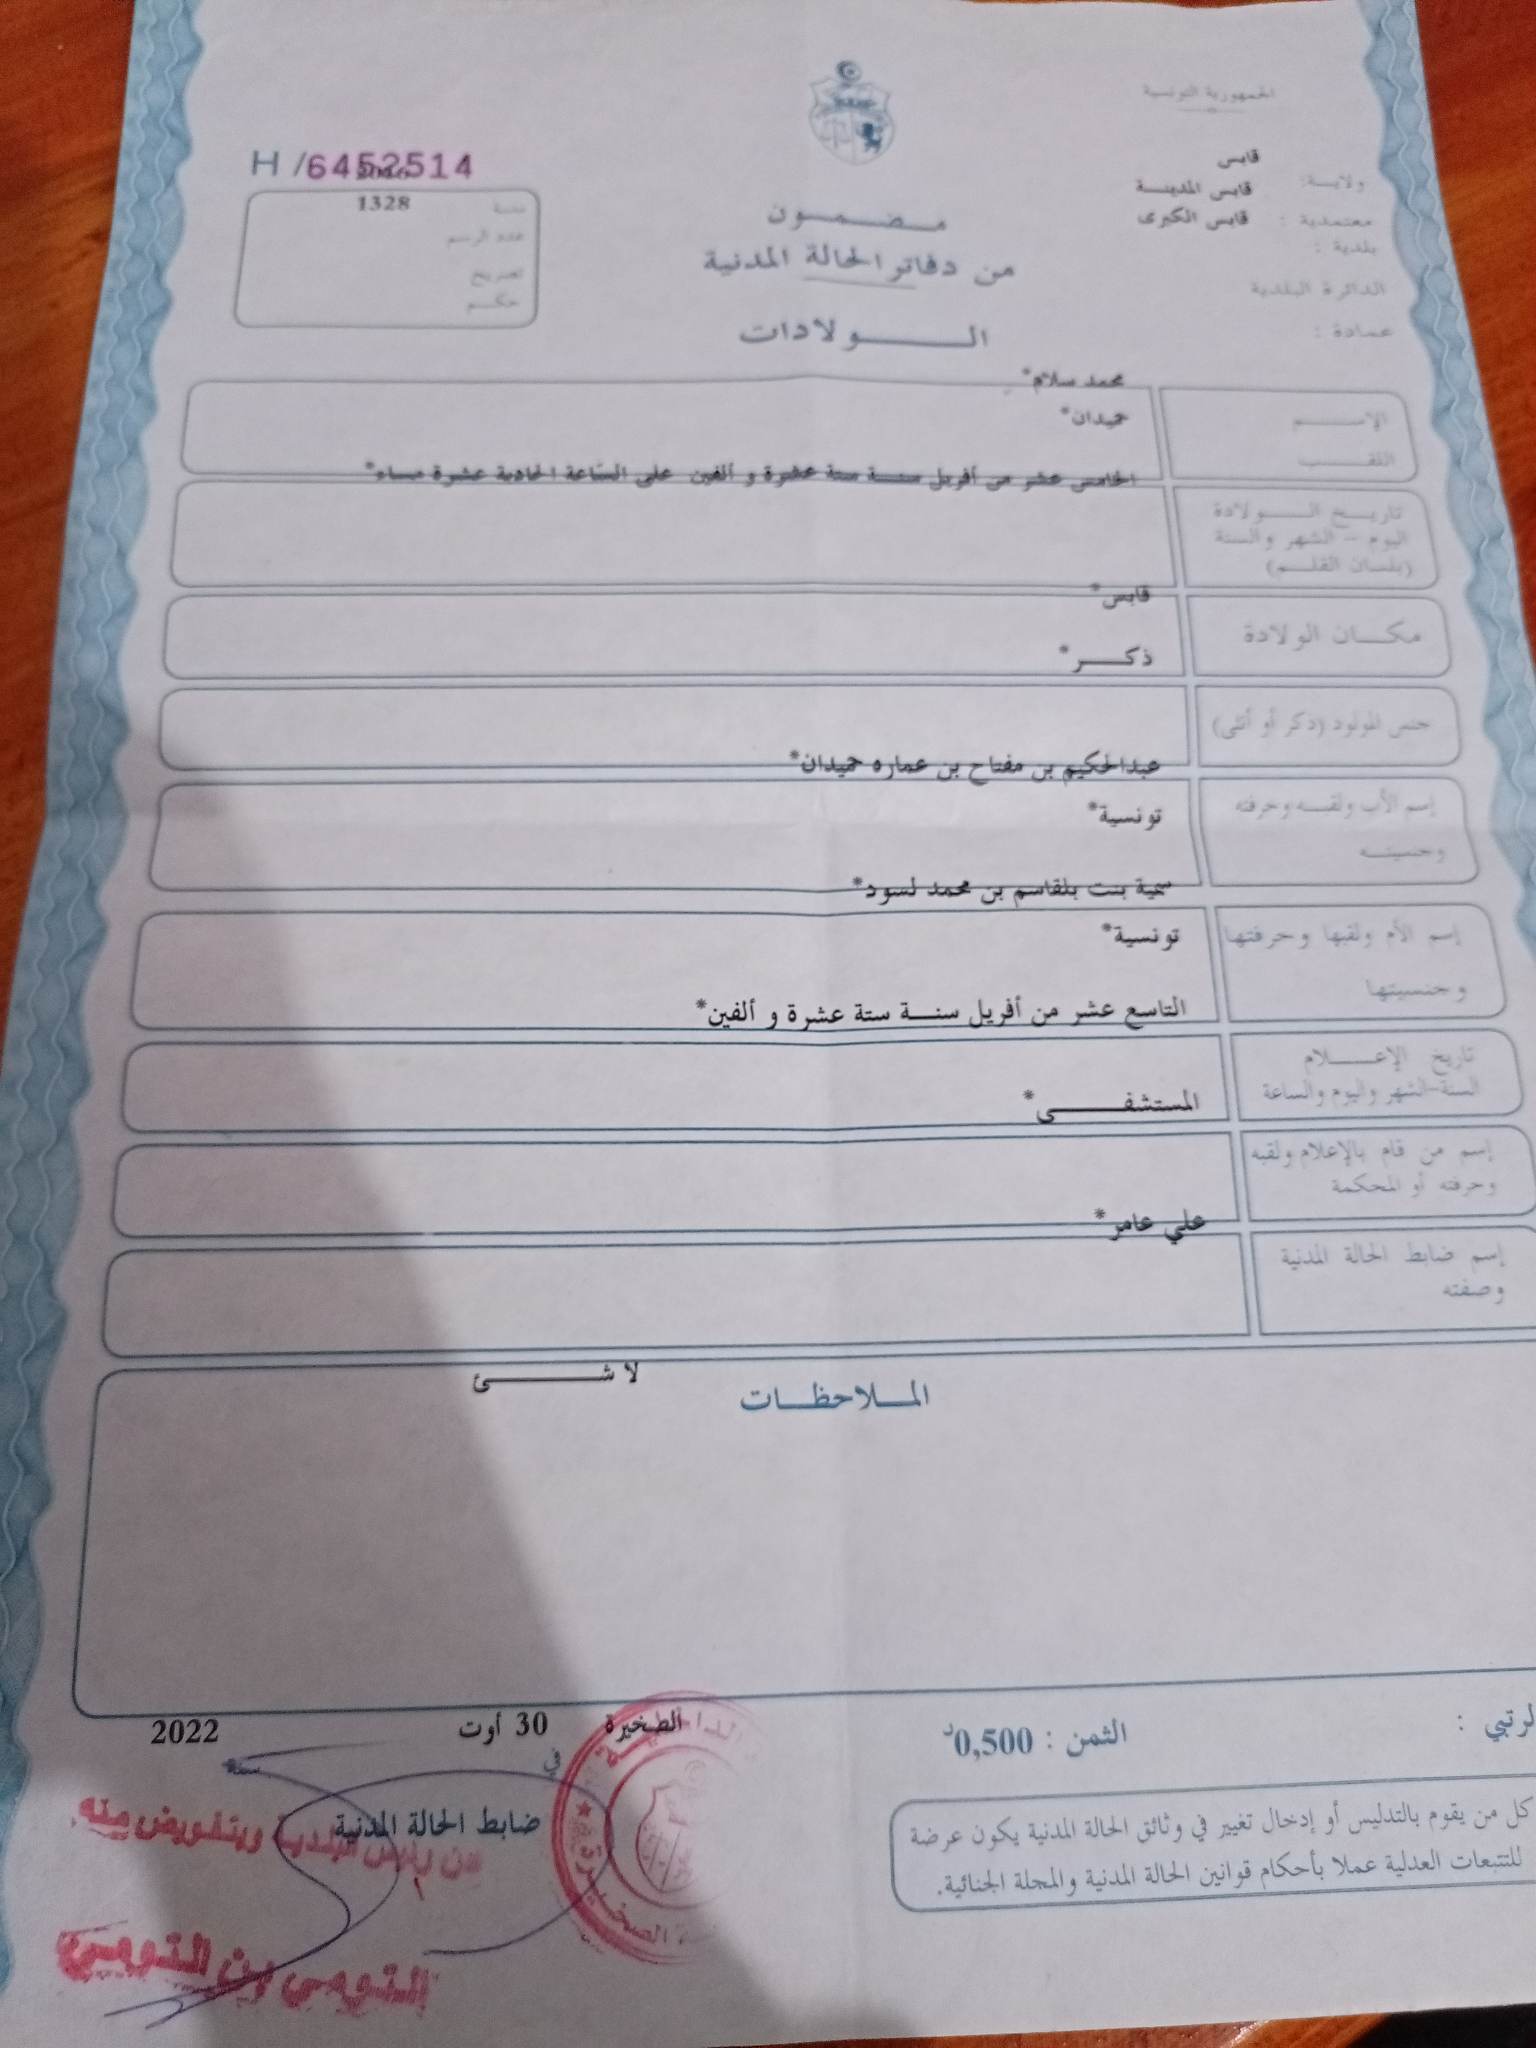 الجمهورية التونسية
ولاية: قابس
معتمدية : قابس المدينة
بلدية : قابس الكبرى
الدائرة البلدية
عمادة :
H /6452514
سنة 2016
عدد الرسم 1328
تصريح
حكم
مضمون
من دفاتر الحالة المدنية
الولادات
محمد سلام*
الإسم
حميدان*
اللقب
الخامس عشر من أفريل سنة ستة عشرة و ألفين على السّاعة الحادية عشرة مساء*
تاريخ الولادة
اليوم - الشهر والسنة
(بلسان القلم)
قابس*
مكان الولادة
ذكر*
جنس المولود (ذكر أو أنثى)
عبدالحكيم بن مفتاح بن عماره حميدان*
إسم الأب ولقبه وحرفته
تونسية*
وجنسيته
سمية بنت بلقاسم بن محمد لسود*
إسم الأم ولقبها وحرفتها
تونسية*
وجنسيتها
التاسع عشر من أفريل سنة ستة عشرة و ألفين*
تاريخ الإعلام
السنة-الشهر واليوم والساعة
المستشفى*
إسم من قام بالإعلام ولقبه
وحرفته أو المحكمة
علي عامر*
إسم ضابط الحالة المدنية
وصفته
لا شئ
الملاحظات
الصخيرة في 30 أوت سنة 2022
الثمن : 0,500د
ضابط الحالة المدنية
عن رئيس البلدية وبتفويض منه
كل من يقوم بالتدليس أو إدخال تغيير في وثائق الحالة المدنية يكون عرضة
للتتبعات العدلية عملا بأحكام قوانين الحالة المدنية والمجلة الجنائية.